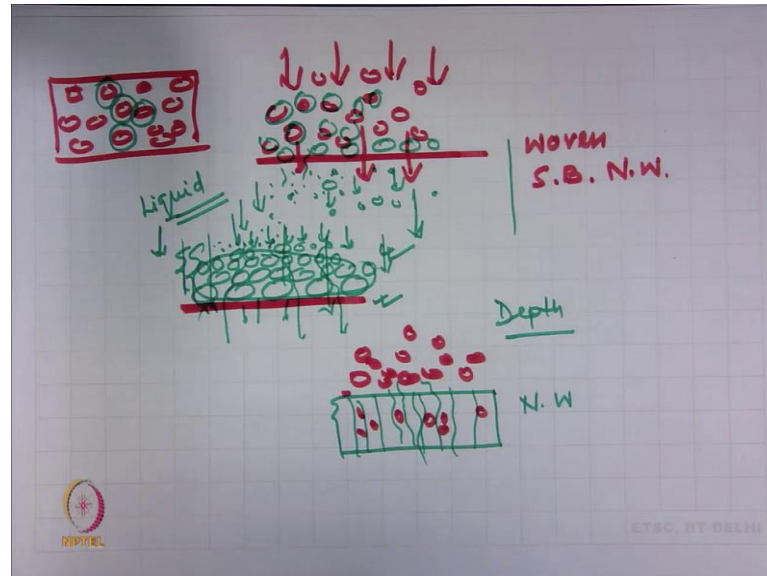 Woven
S.B. N.W.
Liquid
Depth
N.W
NPTEL
ETSC, IIT DELHI